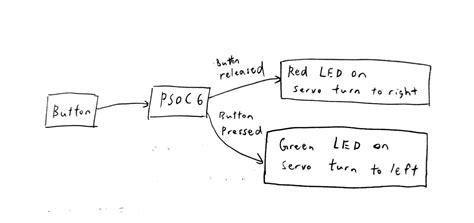 Button
PSOC6
Button
released
Red LED on
servo turn to right
Button
Pressed
Green LED on
servo turn to left